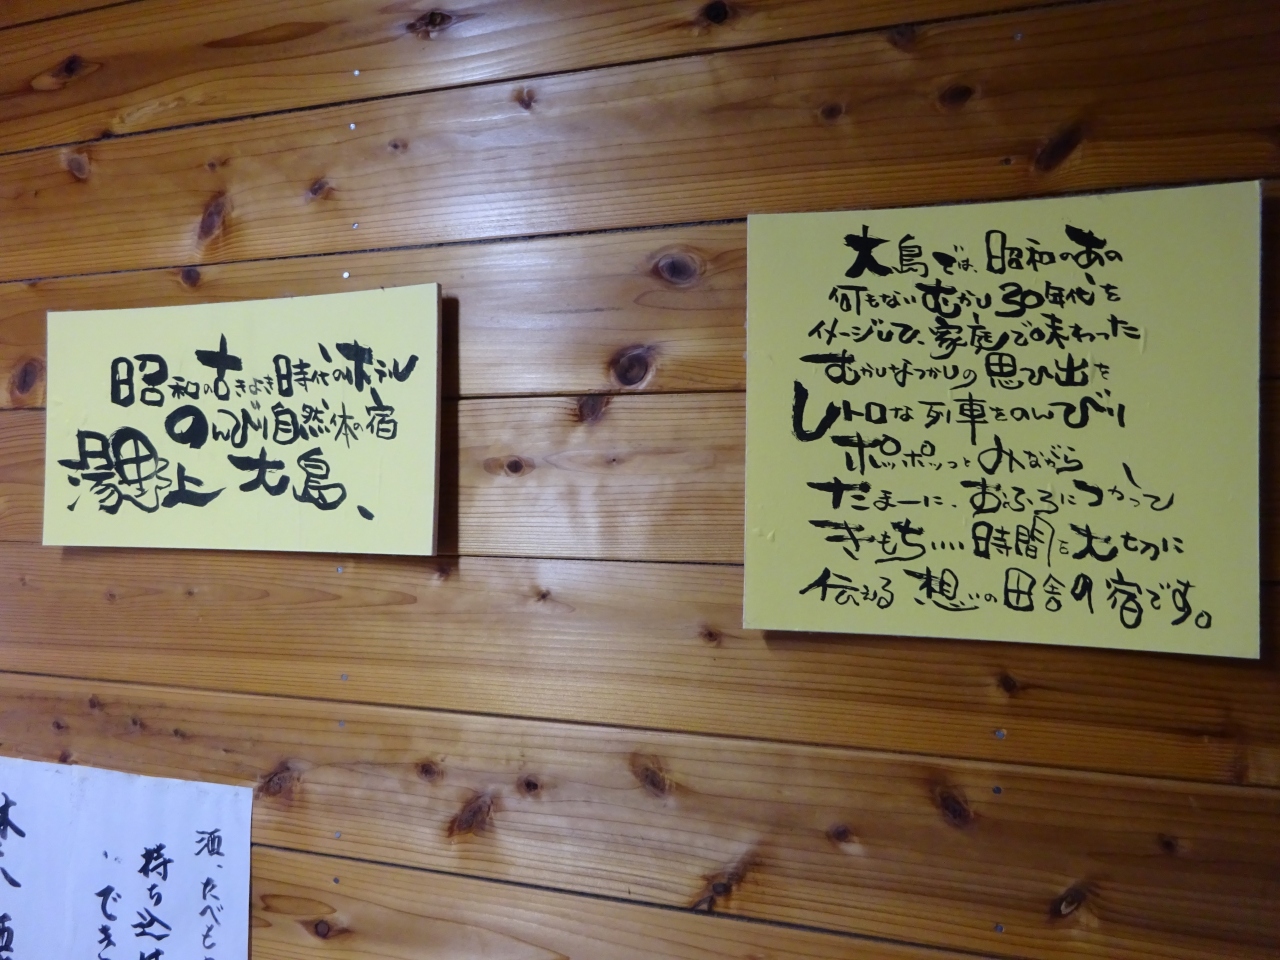 昭和の古きよき時代のホテル
のんびり自然体の宿
湯野上 大島、
大島では、昭和のあの
何もないむかし30年代を
イメージして、家庭で味わった
むかしなつかしの思ひ出を
レトロな列車をのんびり
ポッポッっとみながら
たまーに、おふろにつかって
きもちいい時間を大切に
伝える想いの田舎の宿です。
酒、たべも
持ち込
でき